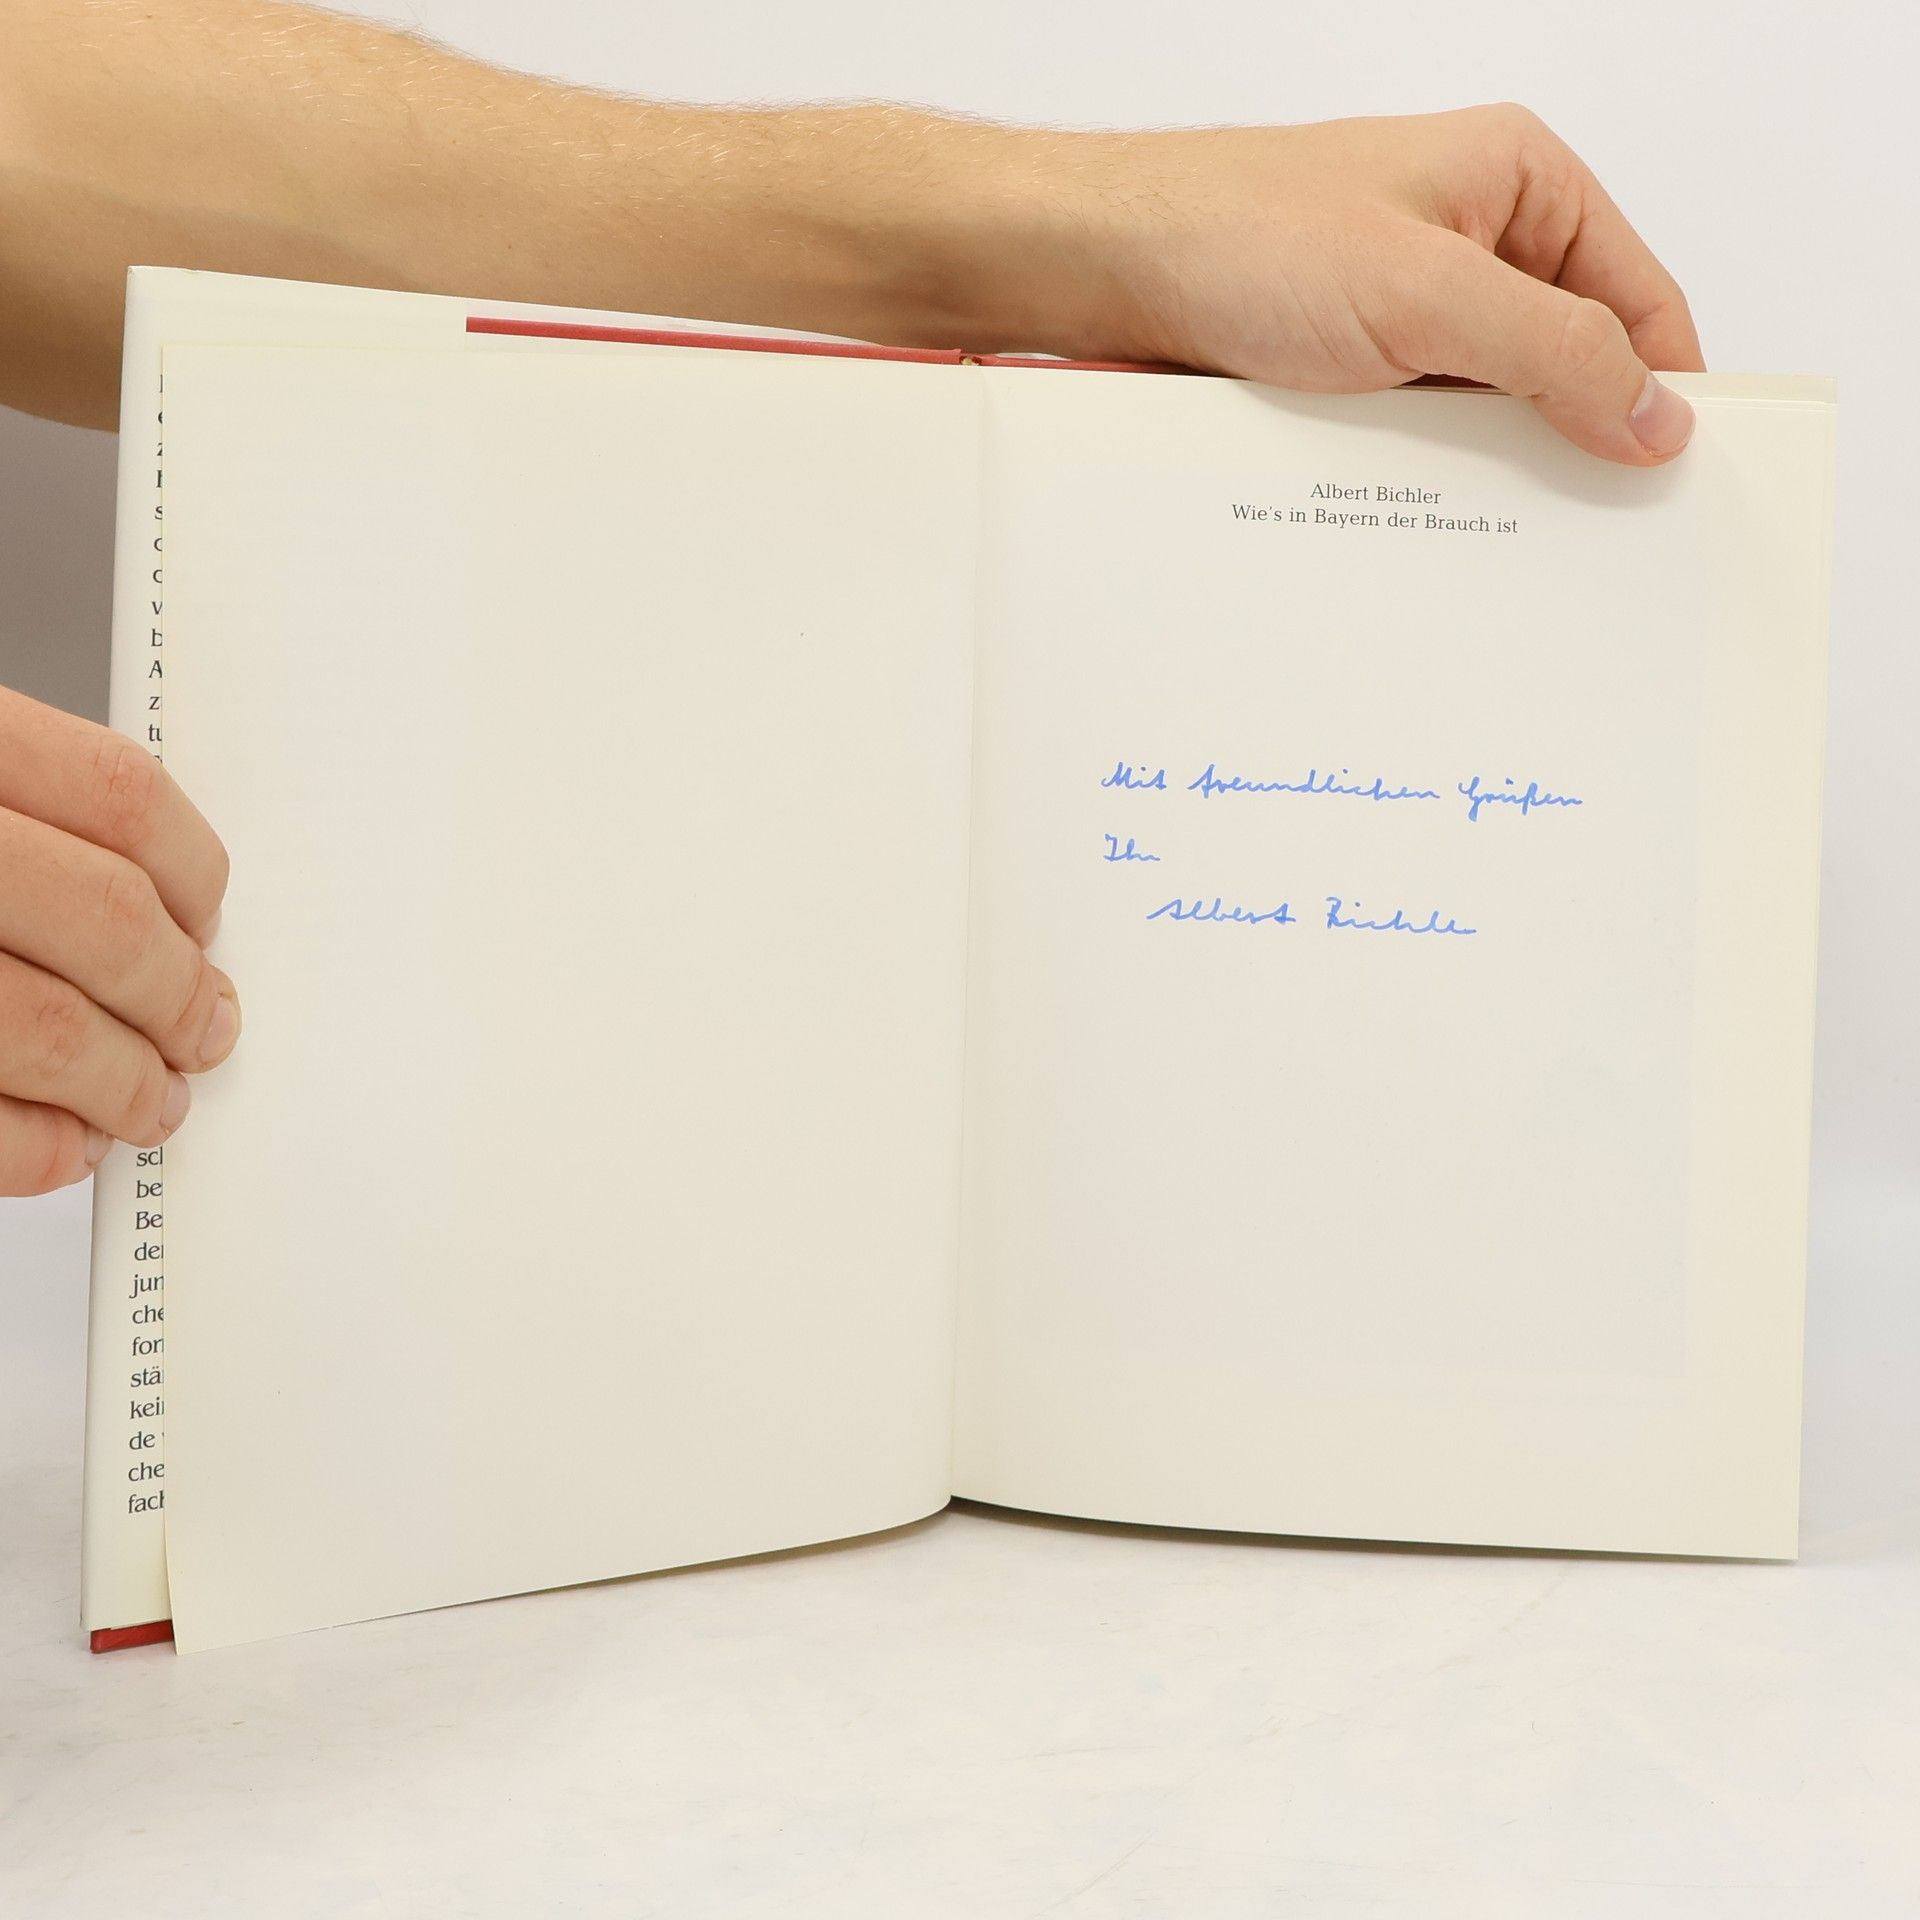 z
tu
scl
be
Be
der
jun
che
for
stä
kei
de
che
fach
Albert Bichler
Wie's in Bayern der Brauch ist
Mit freundlichen Grüßen
Ihr
Albert Bichler